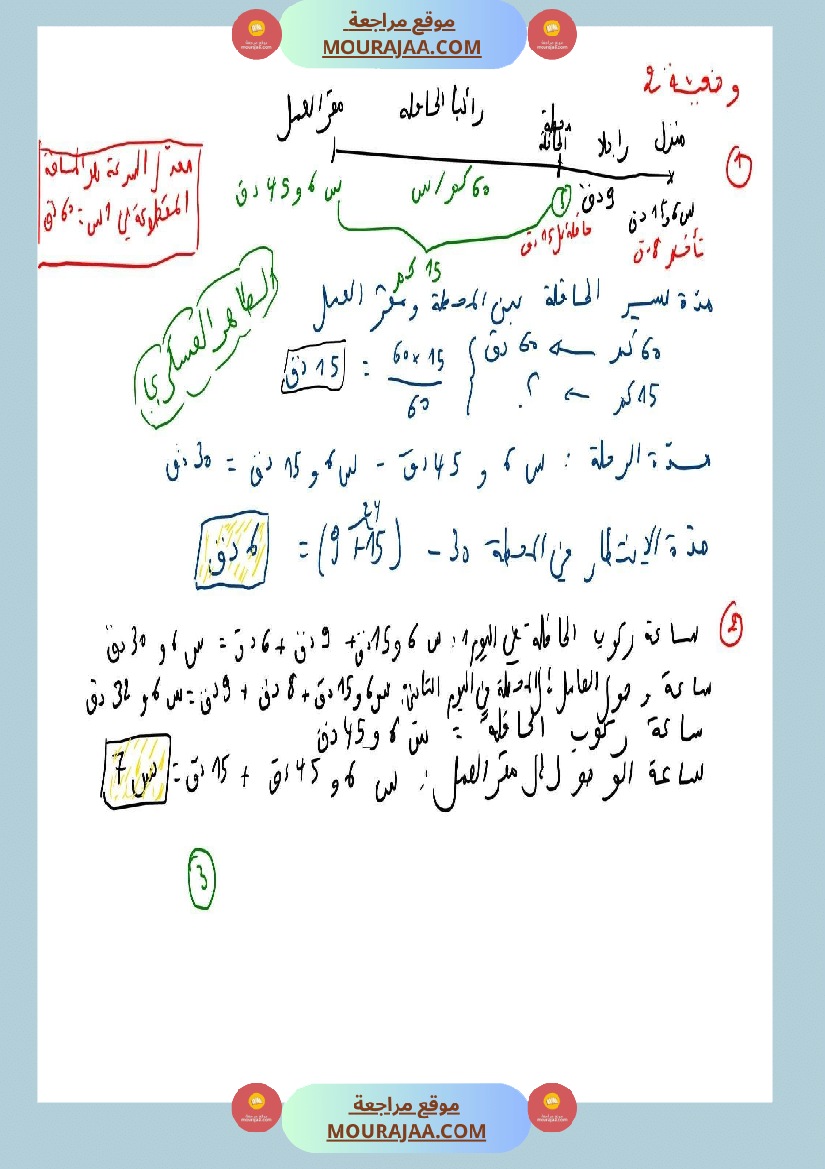 موقع مراجعة
MOURAJAA.COM
وضعية 2
1
منزل راجلا محطة الحافلة راكبا الحافلة مقر العمل
س 6 و 15 دق 9 دق ؟ 60 كم/س س 6 و 45 دق
تأخر 8 دق حافلة كل 15 دق
15 كم
معدل السرعة هو المسافة
المقطوعة في 1س = 60 دق
الطاهر العسكري
مدة سير الحافلة بين المحطة ومقر العمل
60 كم ← 60 دق
15 كم ← ؟
60 × 15 / 60 = 15 دق
مدة الرحلة : س 6 و 45 دق - س 6 و 15 دق = 30 دق
24
مدة الانتظار في المحطة 30 - (9 + 15) = 6 دق
2
ساعة ركوب الحافلة في اليوم 1 : س 6 و 15 دق + 9 دق + 6 دق = س 6 و 30 دق
ساعة وصول العامل إلى المحطة في اليوم الثاني: س 6 و 15 دق + 8 دق + 9 دق = س 6 و 32 دق
ساعة ركوب الحافلة = س 6 و 45 دق
ساعة الوصول إلى مقر العمل : س 6 و 45 دق + 15 دق = س 7
3
موقع مراجعة
MOURAJAA.COM